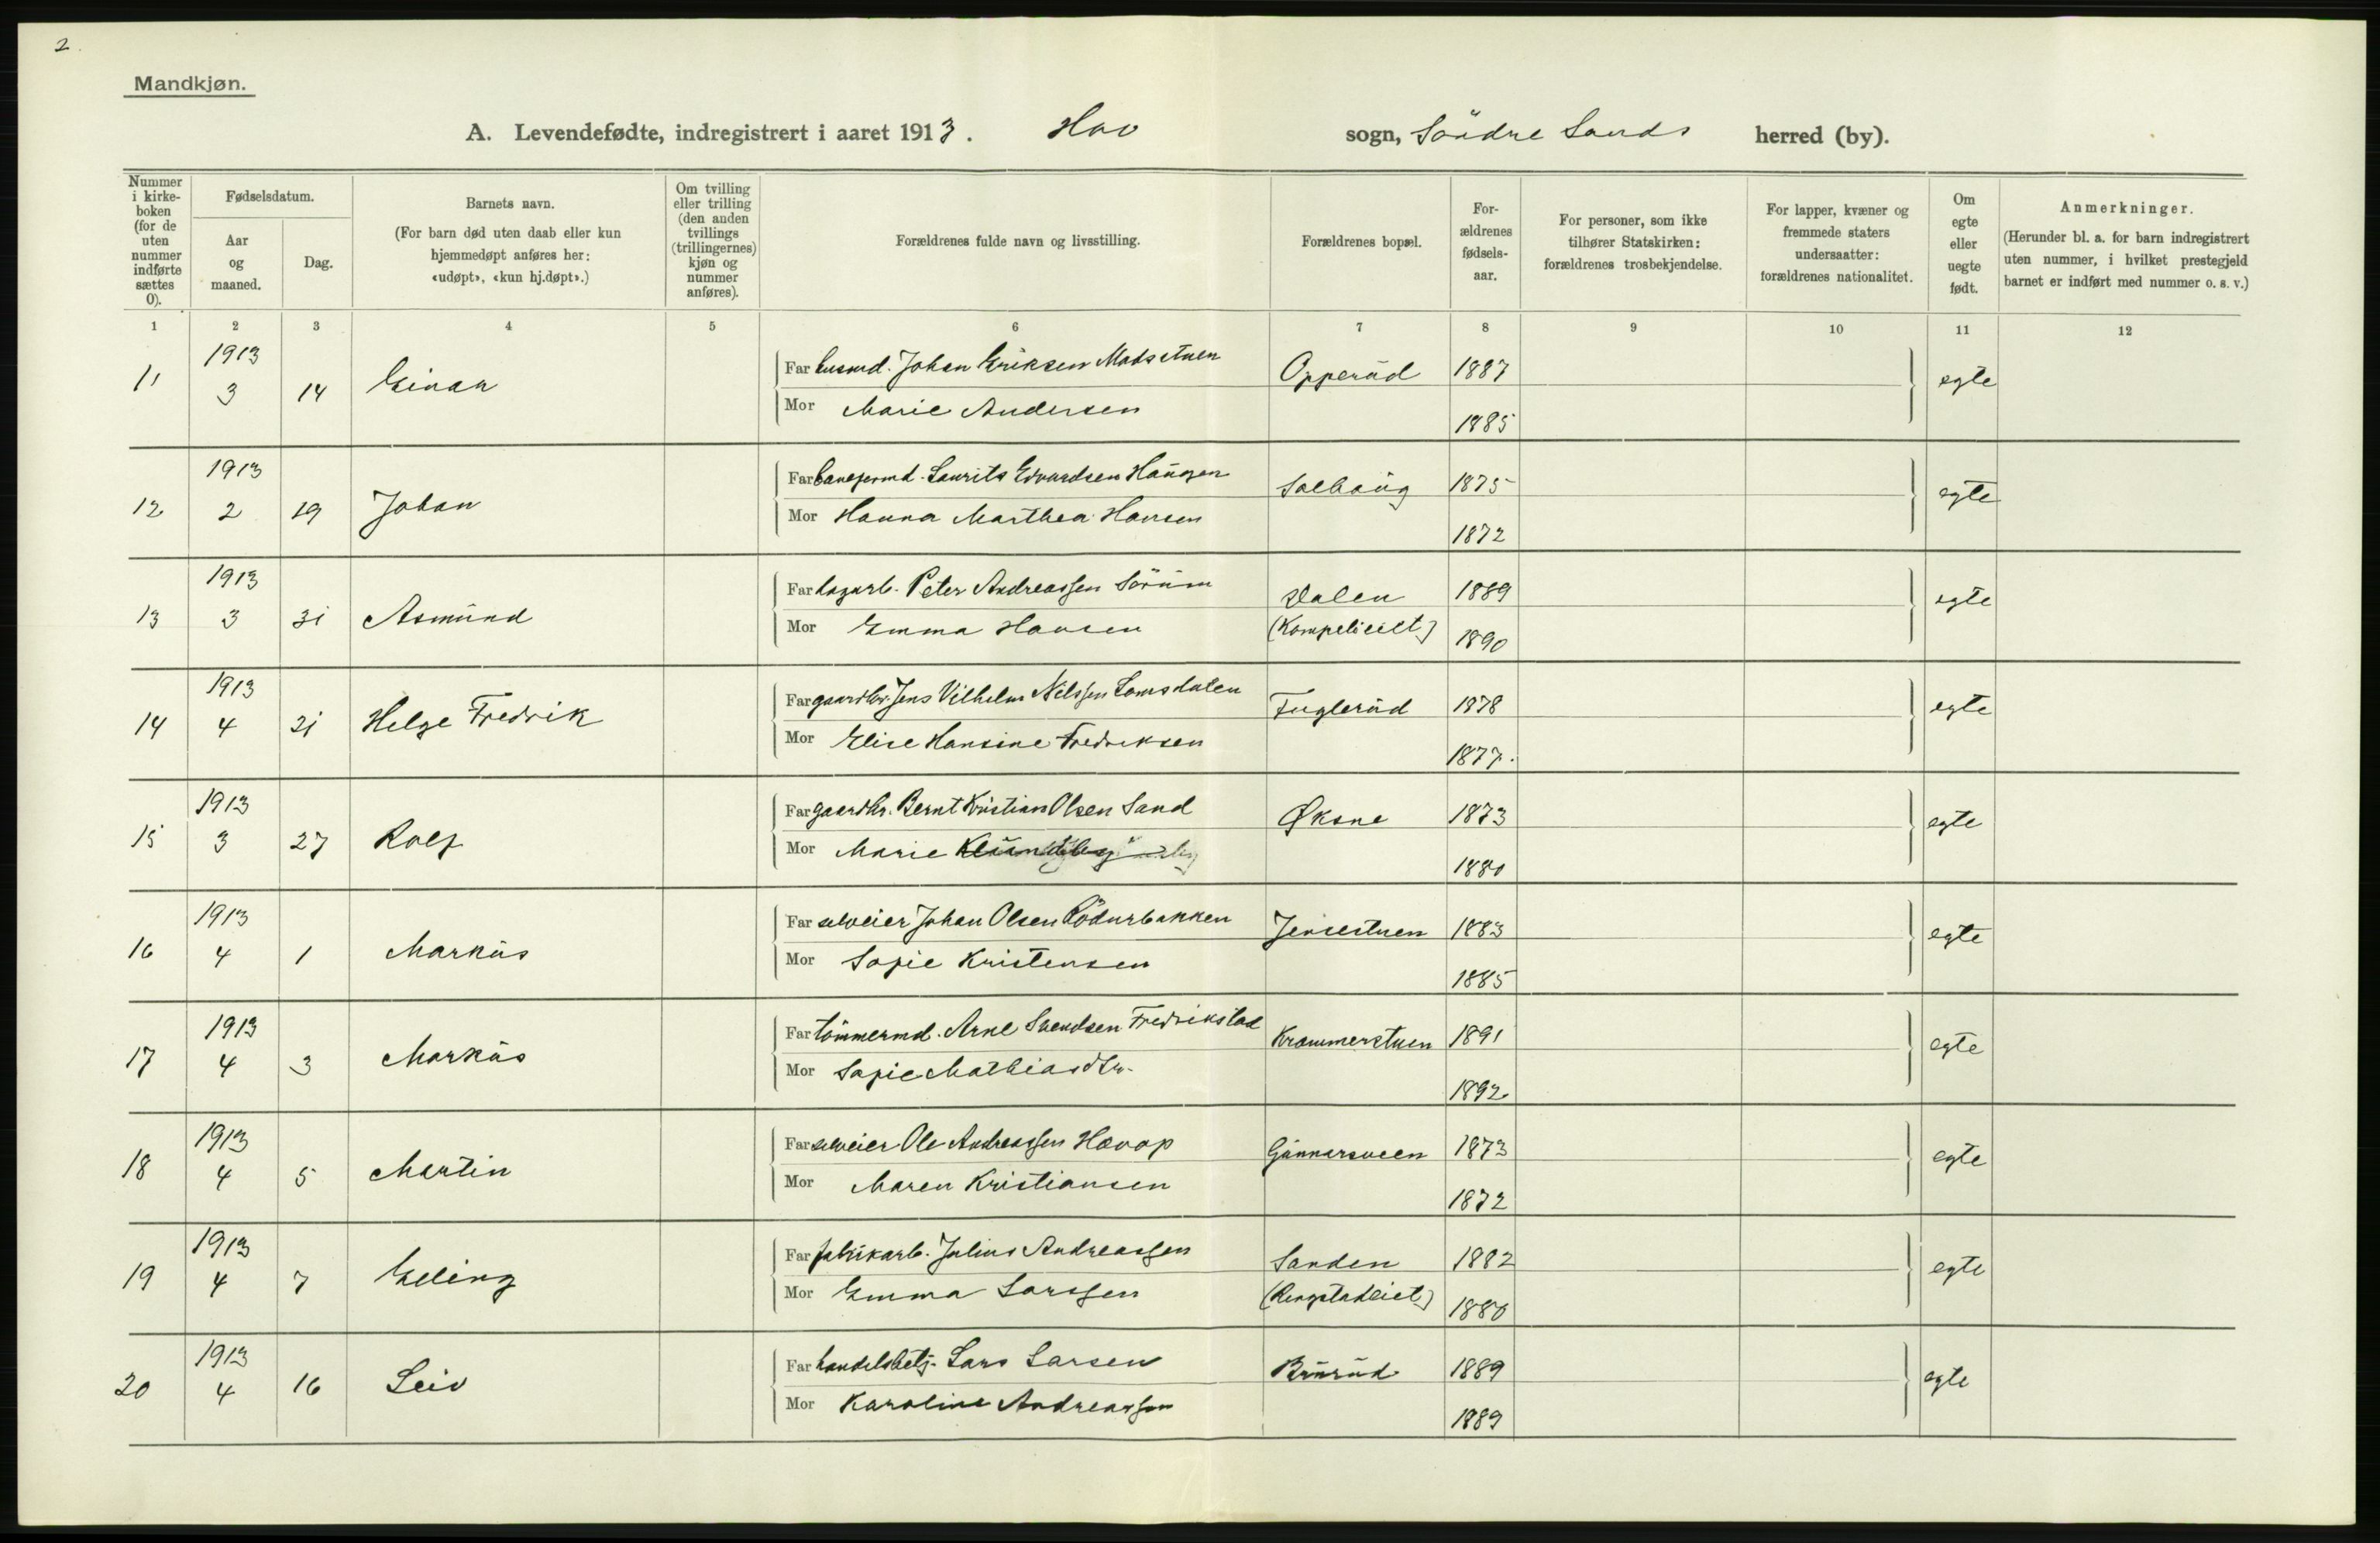 2
Mandkjøn.
A. Levendefødte, indregistrert i aaret 1913. Hov sogn, Søndre Lands herred (by).
Nummer i kirkeboken (for de uten nummer indførte sættes 0).
Fødselsdatum.
Aar og maaned.
Dag.
Barnets navn.
(For barn død uten daab eller kun hjemmedøpt anføres her: «udøpt», «kun hj.døpt».)
Om tvilling eller trilling (den anden tvillings (trillingernes) kjøn og nummer anføres).
Forældrenes fulde navn og livsstilling.
Forældrenes bopæl.
Forældrenes fødselsaar.
For personer, som ikke tilhører Statskirken: forældrenes trosbekjendelse.
For lapper, kvæner og fremmede staters undersaatter: forældrenes nationalitet.
Om egte eller uegte født.
Anmerkninger.
(Herunder bl. a. for barn indregistrert uten nummer, i hvilket prestegjeld barnet er indført med nummer o. s. v.)
1 2 3 4 5 6 7 8 9 10 11 12
11 1913 3 14 Einar Far husmd. Johan Eriksen Madsstuen Opperud 1887 egte
Mor Marie Andersen 1885
12 1913 2 19 Johan Far Laurits Edvardsen Haugen Solhaug 1875 egte
Mor Hanna Marthea Hansen 1872
13 1913 3 31 Asmund Far dagarb. Peter Andreassen Sörum Dalen 1889 egte
Mor Emma Hansen 1890
14 1913 4 21 Helge Fredrik Far gaardbr. Jens Vilhelm Nilssen Lomsdalen Fuglerud 1878 egte
Mor Elise Hansine Fredriksen 1877.
15 1913 3 27 Rolf Far gaardbr. Bernt Kristian Olsen Sand Øksne 1873 egte
Mor Marie 1880
16 1913 4 1 Markus Far selveier Johan Olsen Jensestuen 1883 egte
Mor Sofie Kristensen 1885
17 1913 4 3 Markus Far tömmermd. Arne Svendsen Fredrikstad Krammerstuen 1891 egte
Mor Sofie Mathiasdtr. 1892
18 1913 4 5 Martin Far selveier Ole Andreassen Gunnarsveen 1873 egte
Mor Maren Kristiansen 1872
19 1913 4 7 Erling Far fabrikarb. Julius Andreassen Sanden 1882 egte
Mor Emma Larssen 1880
20 1913 4 16 Leiv Far handelsbetj. Lars Larsen 1889 egte
Mor Karoline Andreassen 1889